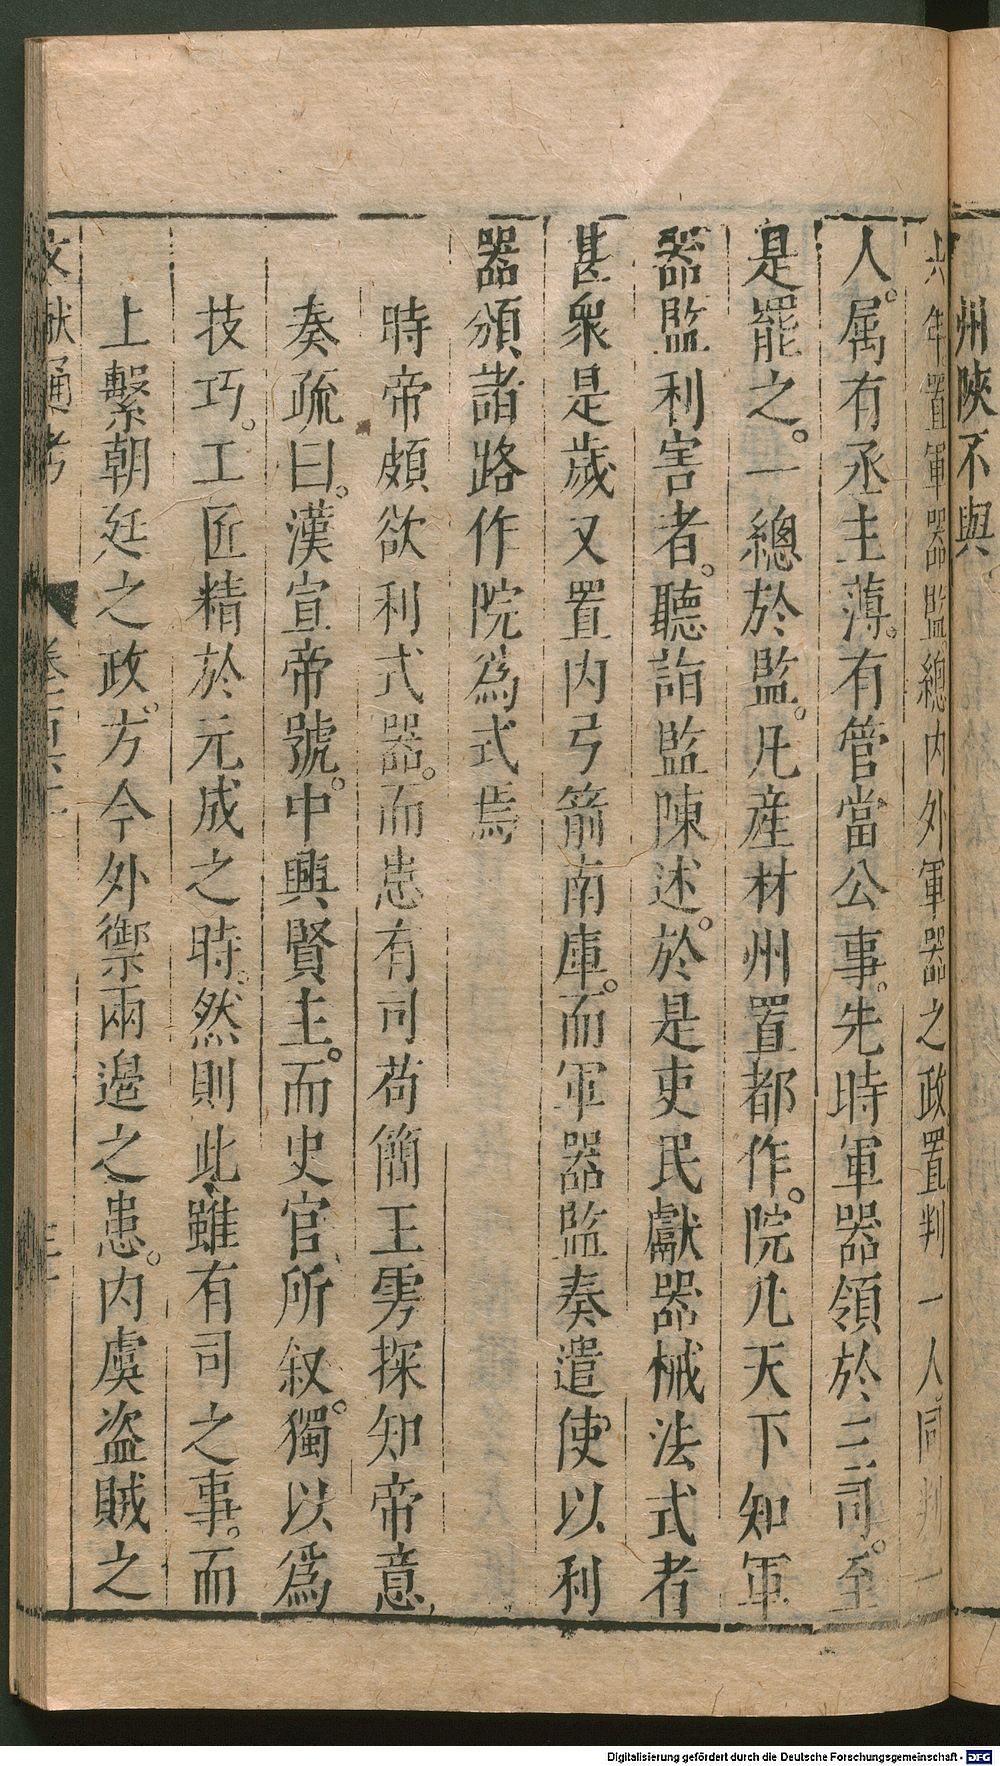 州陜不與
六年置軍器監總內外軍器之政置判一人同判一
人屬有丞主薄有管當公事先時軍器領於三司至
是罷之一總於監凡産材州置都作院凡天下知軍
器監利害者聽詣監陳述於是吏民獻器械法式者
甚衆是歲又置內弓箭南庫而軍器監奏遣使以利
器頒諸路作院為式焉
時帝頗欲利戎器而患有司苟簡王雱探知帝意
奏疏曰漢宣帝號中興賢主而史官所叙獨以爲
技巧工匠精於元成之時然則此雖有司之事而
上繫朝廷之政方今外禦兩邉之患内虞盗賊之
文獻通考
Digitalisierung gefördert durch die Deutsche Forschungsgemeinschaft - DFG